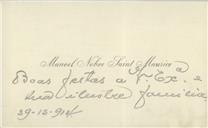 Manoel Nobre Saint Maurice
Boas festas a V. Ex.ª e
sua illustre familia
29-12-914